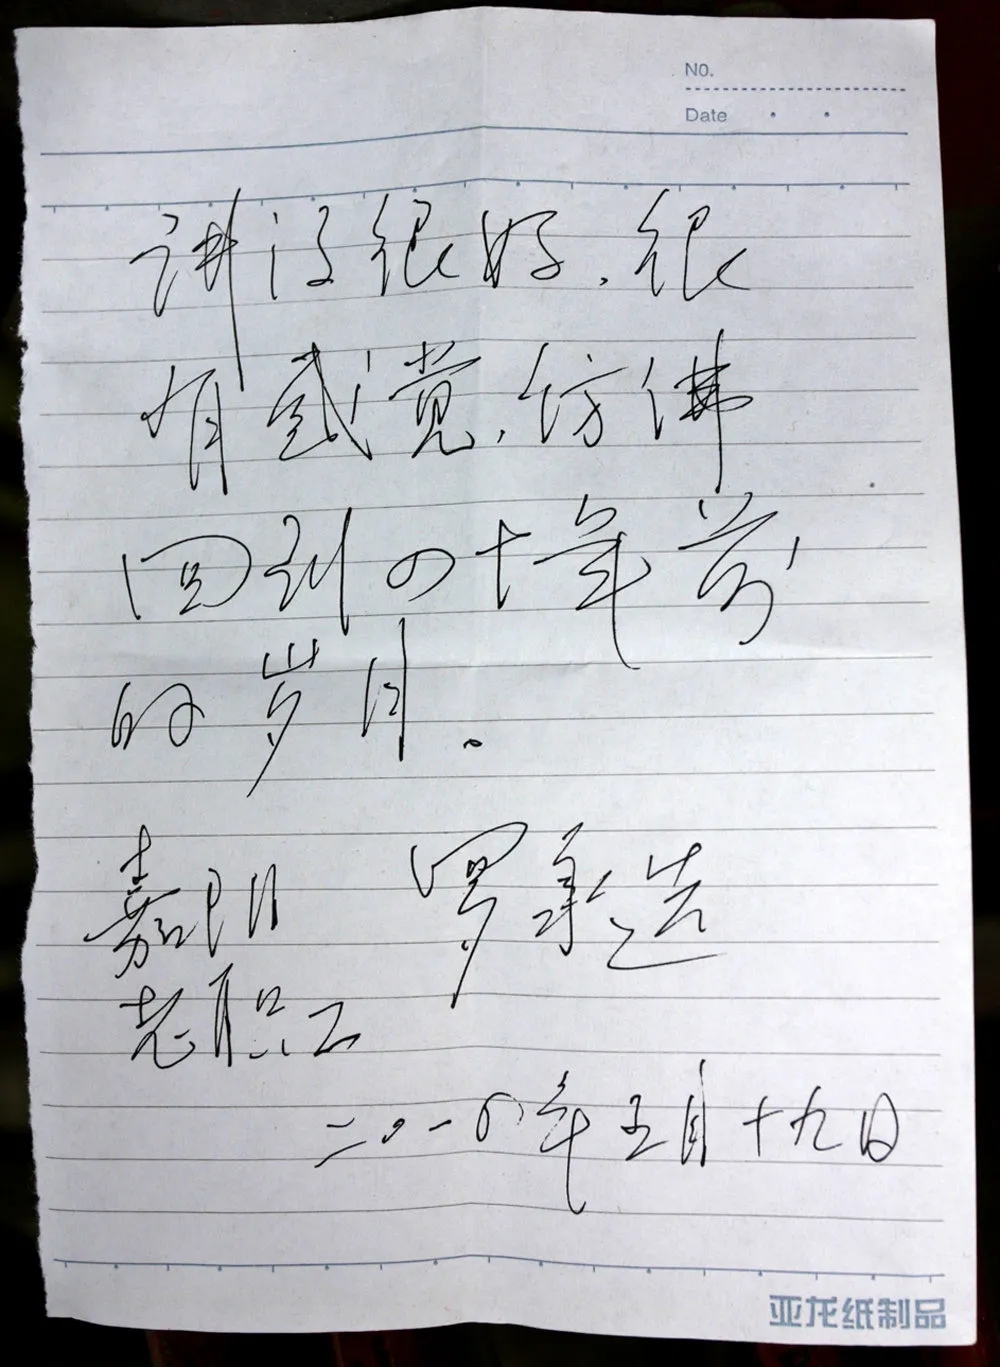 NO.
Date
讲得很好，很
有感觉，仿佛
回到四十年前
的岁月。
嘉阳 罗承造
老职工
二〇一六年五月十九日
亚龙纸制品